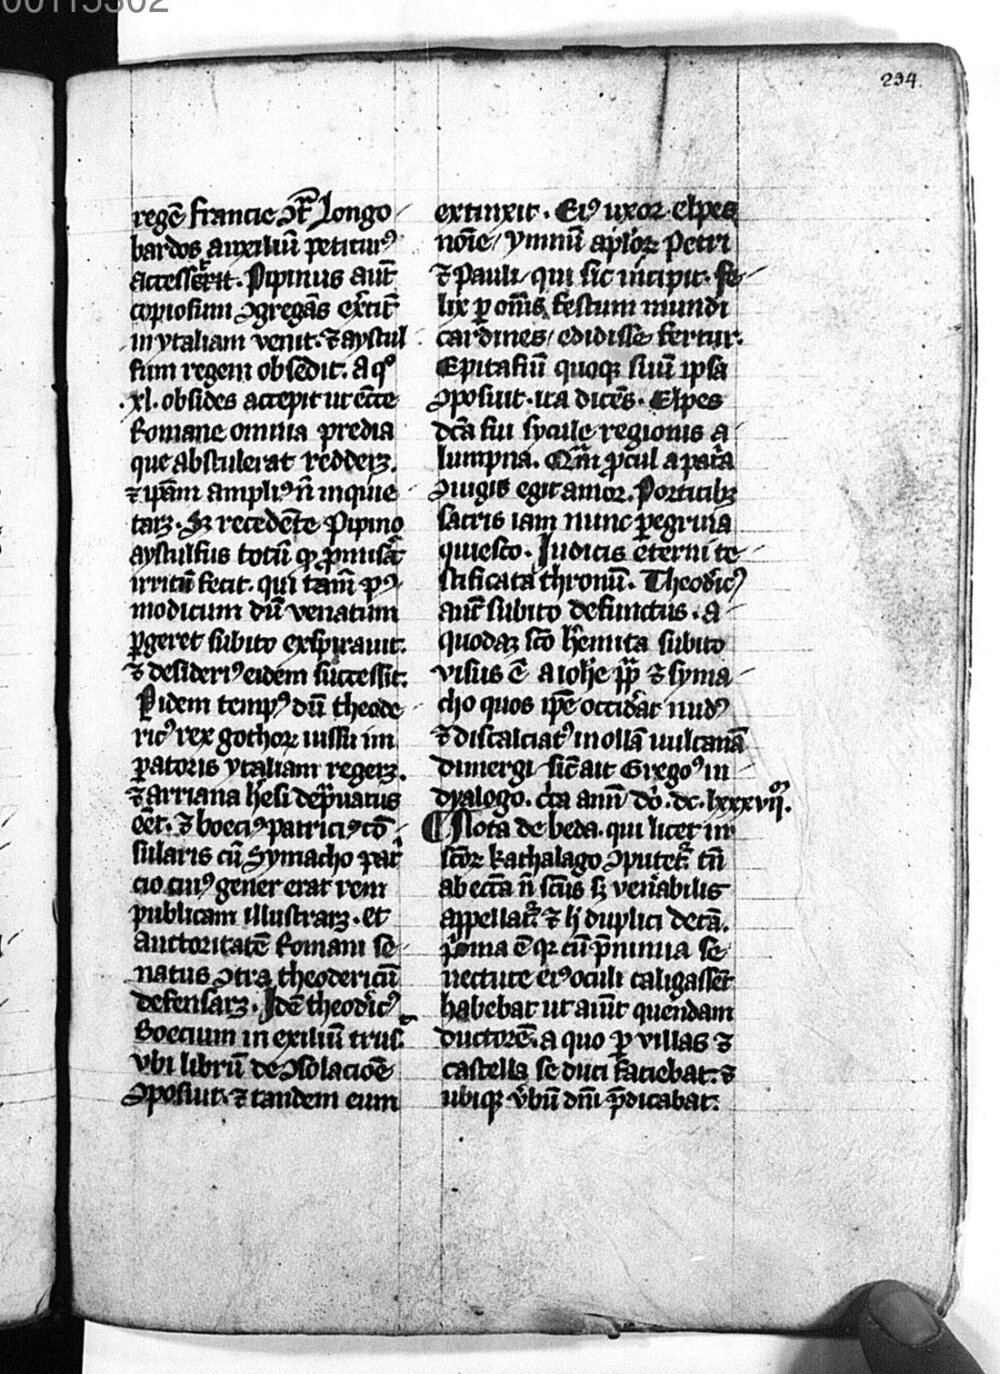 00115302
234.
regē francie ↄtͣ longo
bardos auxiliū petiturꝰ
accesserit. Pipinus aūt
copiosum ↄgregās ex̄citū
in ytaliam venit. ⁊ aystul
fum regem obsedit. a qͦ
.xl. obsides accepit ut ecc̄e
Romane omnia predia
que abstulerat redderꝫ.
⁊ ip̄am ampliꝰ n̄ inquie
tarꝫ. Sꝫ recedēte Pipino
aystulfus totū qͥ p̄misāt
irritū fecit. qui tam̄ pꝰ
modicum dū venatum
ꝑgeret subito exspirauit.
⁊ desideriꝰ eidem successit.
Eidem tempꝰ dū theode
ricꝰ rex gothoꝝ iussu im
ꝑatoris ytaliam regerꝫ.
⁊ arriana h̄esi dep̄uatus
eēt. ⁊ boeciꝰ patriciꝰ cō
sularis cū Symacho pat̄
cio cuiꝰ gener erat rem
publicam illustrarꝫ. et
auctoritatē Romani se
natus ↄtra theodericū
defensarꝫ. Idē theodicꝰ
Boecium in exiliū trusͭ
vbi librū de ↄsolacōe
ↄposuit. ⁊ tandem eum
extinxit. Eiꝰ uxor elpes
noīe ymnū apl'oꝝ Petri
⁊ Pauli qui sic incipit. fe
lix ꝑ om̄s festum mundi
cardines edidisse fertur.
Epitafiū quoqꝫ suū ipsa
ↄposuit. ita dicēs. Elpes
dc̄a fui sycule regionis a
lumpna. Qm̄ ꝓcul a pat̄a
ↄiugis egit amor. Porticibꝫ
sacris iam nunc ꝑegrina
quiesco. Iudicis eterni te
stificata thronū. Theod'icꝰ
aut̄ subito defunctus. a
quodaꝫ sc̄o h̄emita subito
visus ē a ioh̄e pp̄ ⁊ syma
cho quos ip̄e occid'at nudꝰ
⁊ discalciatꝰ in ollā uulcanā
dimergi sic̄ ait Gregoꝰ in
dyalogo. c̄ca ann̄ do. dc. lxxxvij.
¶ Nota de beda. qui licet in
sc̄oꝝ kathalago ↄputet̄ tn̄
ab ecc̄a n̄ sc̄us sꝫ ven'abilis
appellat̄. ⁊ h̄ duplici de cā.
p'ma ē qꝛ cū p̄ nimia se
nectute eiꝰ oculi caligassēt
habebat ut aiūt quendam
ductorē. a quo ꝑ villas ⁊
castella se duci faciebat. ⁊
ubiqꝫ v̄bū dn̄i p̄dicabat.